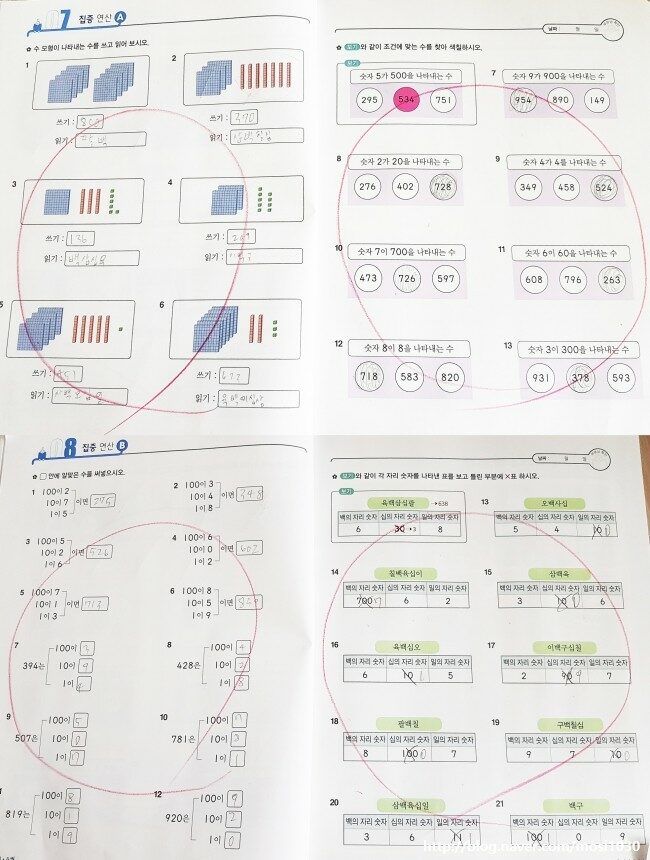 07 집중 연산 A
수 모형이 나타내는 수를 쓰고 읽어 보시오.
1
쓰기 : 800
읽기 : 팔백
2
쓰기 : 370
읽기 :
3
쓰기 : 136
읽기 : 백삼십육
4
쓰기 :
읽기 :
5
쓰기 : 451
읽기 :
6
쓰기 :
읽기 :
날짜 월 일
보기와 같이 조건에 맞는 수를 찾아 색칠하시오.
보기
숫자 5가 500을 나타내는 수
295 534 751
7 숫자 9가 900을 나타내는 수
954 890 149
8 숫자 2가 20을 나타내는 수
276 402 728
9 숫자 4가 4를 나타내는 수
349 458 524
10 숫자 7이 700을 나타내는 수
473 726 597
11 숫자 6이 60을 나타내는 수
608 796 263
12 숫자 8이 8을 나타내는 수
718 583 820
13 숫자 3이 300을 나타내는 수
931 378 593
08 집중 연산 B
안에 알맞은 수를 써넣으시오.
1 100이 2
10이 7 이면 275
1이 5
2 100이 3
10이 4 이면 348
1이 8
3 100이 5
10이 2 이면 526
1이 6
4 100이 6
10이 0 이면 602
1이 2
5 100이 7
10이 1 이면 713
1이 3
6 100이 8
10이 5 이면 859
1이 9
7 100이 3
394는 10이 9
1이 4
8 100이 4
428은 10이 2
1이 8
9 100이 5
507은 10이 0
1이 7
10 100이 7
781은 10이
1이 1
100이 8
819는 10이 1
1이 9
12 100이 9
920은 10이 2
1이 0
날짜 월 일
보기와 같이 각 자리 숫자를 나타낸 표를 보고 틀린 부분에 ×표 하시오.
보기
육백삼십팔 → 638
백의 자리 숫자 십의 자리 숫자 일의 자리 숫자
6 30 →3 8
13 오백사십
백의 자리 숫자 십의 자리 숫자 일의 자리 숫자
5 4 10
14 칠백육십이
백의 자리 숫자 십의 자리 숫자 일의 자리 숫자
700 7 6 2
15 삼백육
백의 자리 숫자 십의 자리 숫자 일의 자리 숫자
3 10 6
16 육백십오
백의 자리 숫자 십의 자리 숫자 일의 자리 숫자
6 10 1 5
17 이백구십칠
백의 자리 숫자 십의 자리 숫자 일의 자리 숫자
2 90 9 7
18 팔백칠
백의 자리 숫자 십의 자리 숫자 일의 자리 숫자
8 100 0 7
19 구백칠십
백의 자리 숫자 십의 자리 숫자 일의 자리 숫자
9 7 10 0
20 삼백육십일
백의 자리 숫자 십의 자리 숫자 일의 자리 숫자
3 6 11 1
21 백구
백의 자리 숫자 십의 자리 숫자 일의 자리 숫자
100 1 0 9
http://blog.naver.com/mosf1030